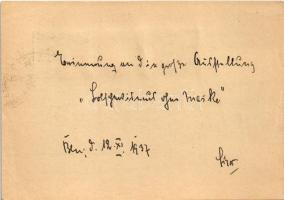 Erinnerung an die große Ausstellung
„Bolschewismus ohne Maske"
Bln, d. 12. XI. 1937